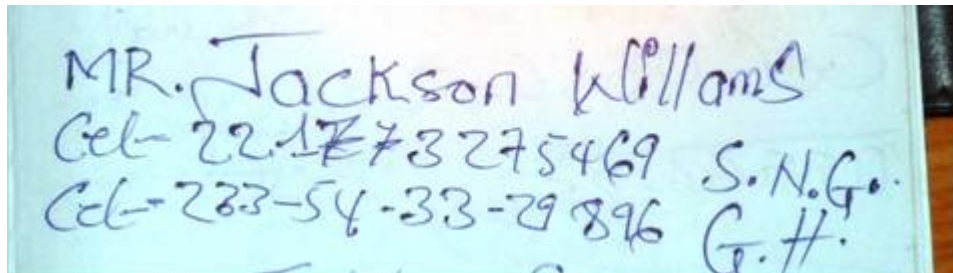 MR. Jackson Willams
Cel-221773275469 S.N.G.
Cel-233-54-33-29896 G.H.